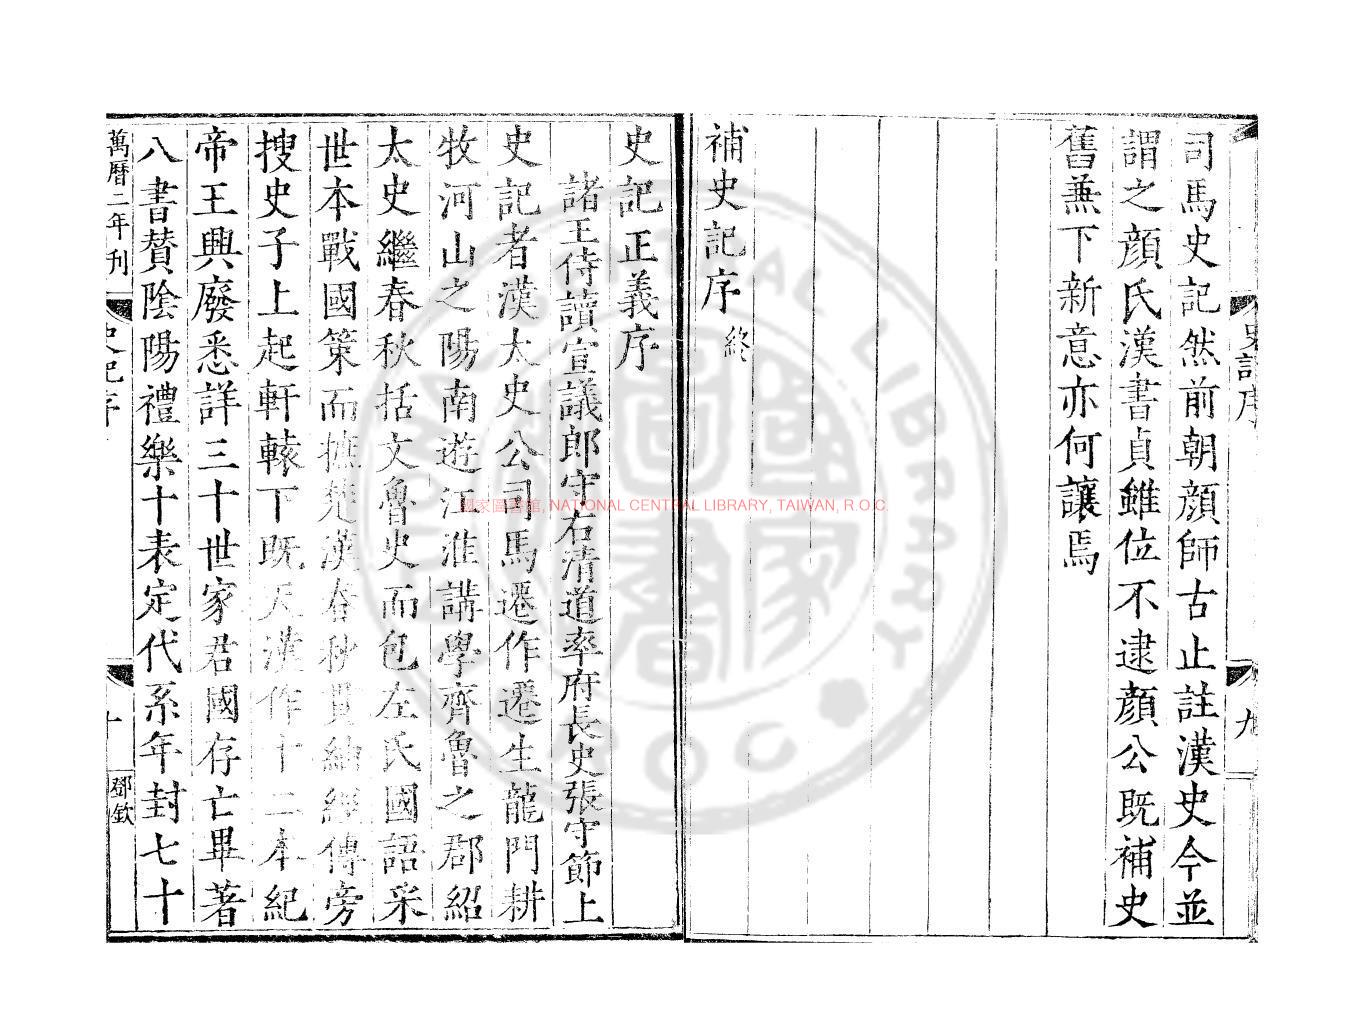 司馬史記然前朝顔師古止註漢史今並
謂之顔氏漢書貞雖位不逮顔公既補史
舊兼下新意亦何讓焉
補史記序 終
史記序
九
史記正義序
諸王侍讀宣議郎守右清道率府長史張守節上
史記者漢太史公司馬遷作遷生龍門耕
牧河山之陽南遊江淮講學齊魯之郡紹
太史繼春秋括文魯史而包左氏國語采
世本戰國策而摭楚漢春秋貫紬經傳旁
搜史子上起軒轅下既天漢作十二本紀
帝王興廢悉詳三十世家君國存亡畢著
八書賛陰陽禮樂十表定代系年封七十
萬曆二年刊
史記序
十
鄧欽
國家圖書館, NATIONAL CENTRAL LIBRARY, TAIWAN, R.O.C.
NATIONAL CENTRAL LIBRARY
R.O.C.